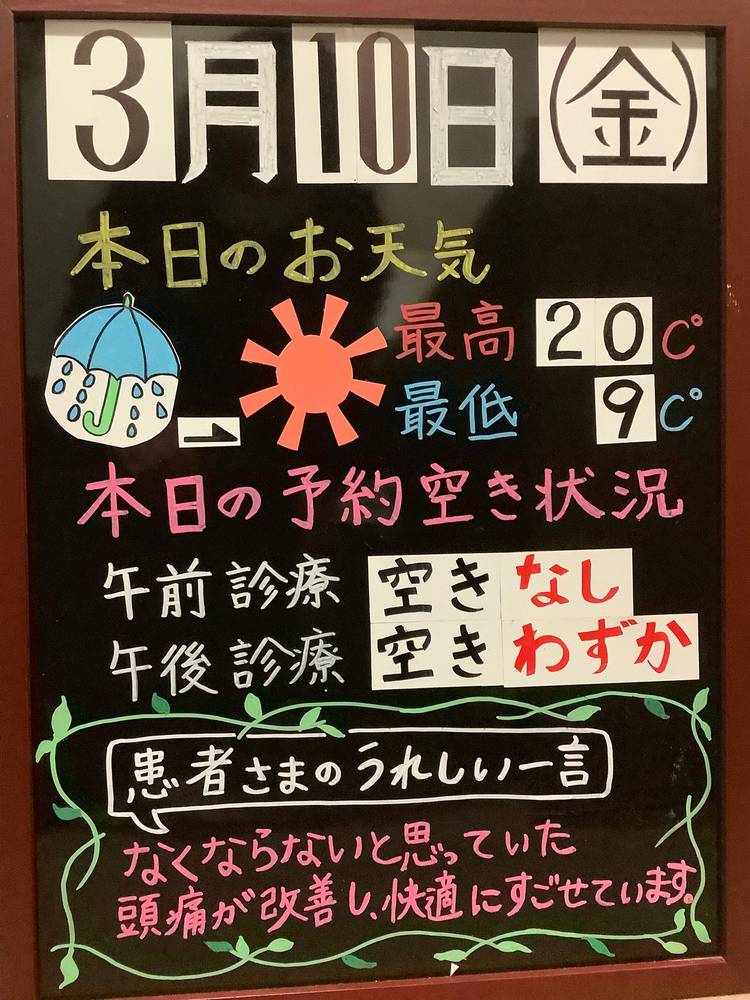 3月10日(金)
本日のお天気
最高 20℃
最低 9℃
本日の予約空き状況
午前診療 空きなし
午後診療 空きわずか
患者さまのうれしい一言
なくならないと思っていた
頭痛が改善し、快適にすごせています。